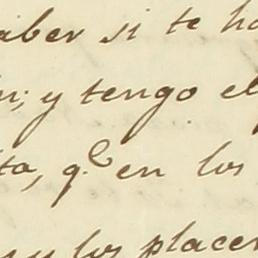 aber si te ha
n; y tengo el
ta, q.e en los
s y los placer